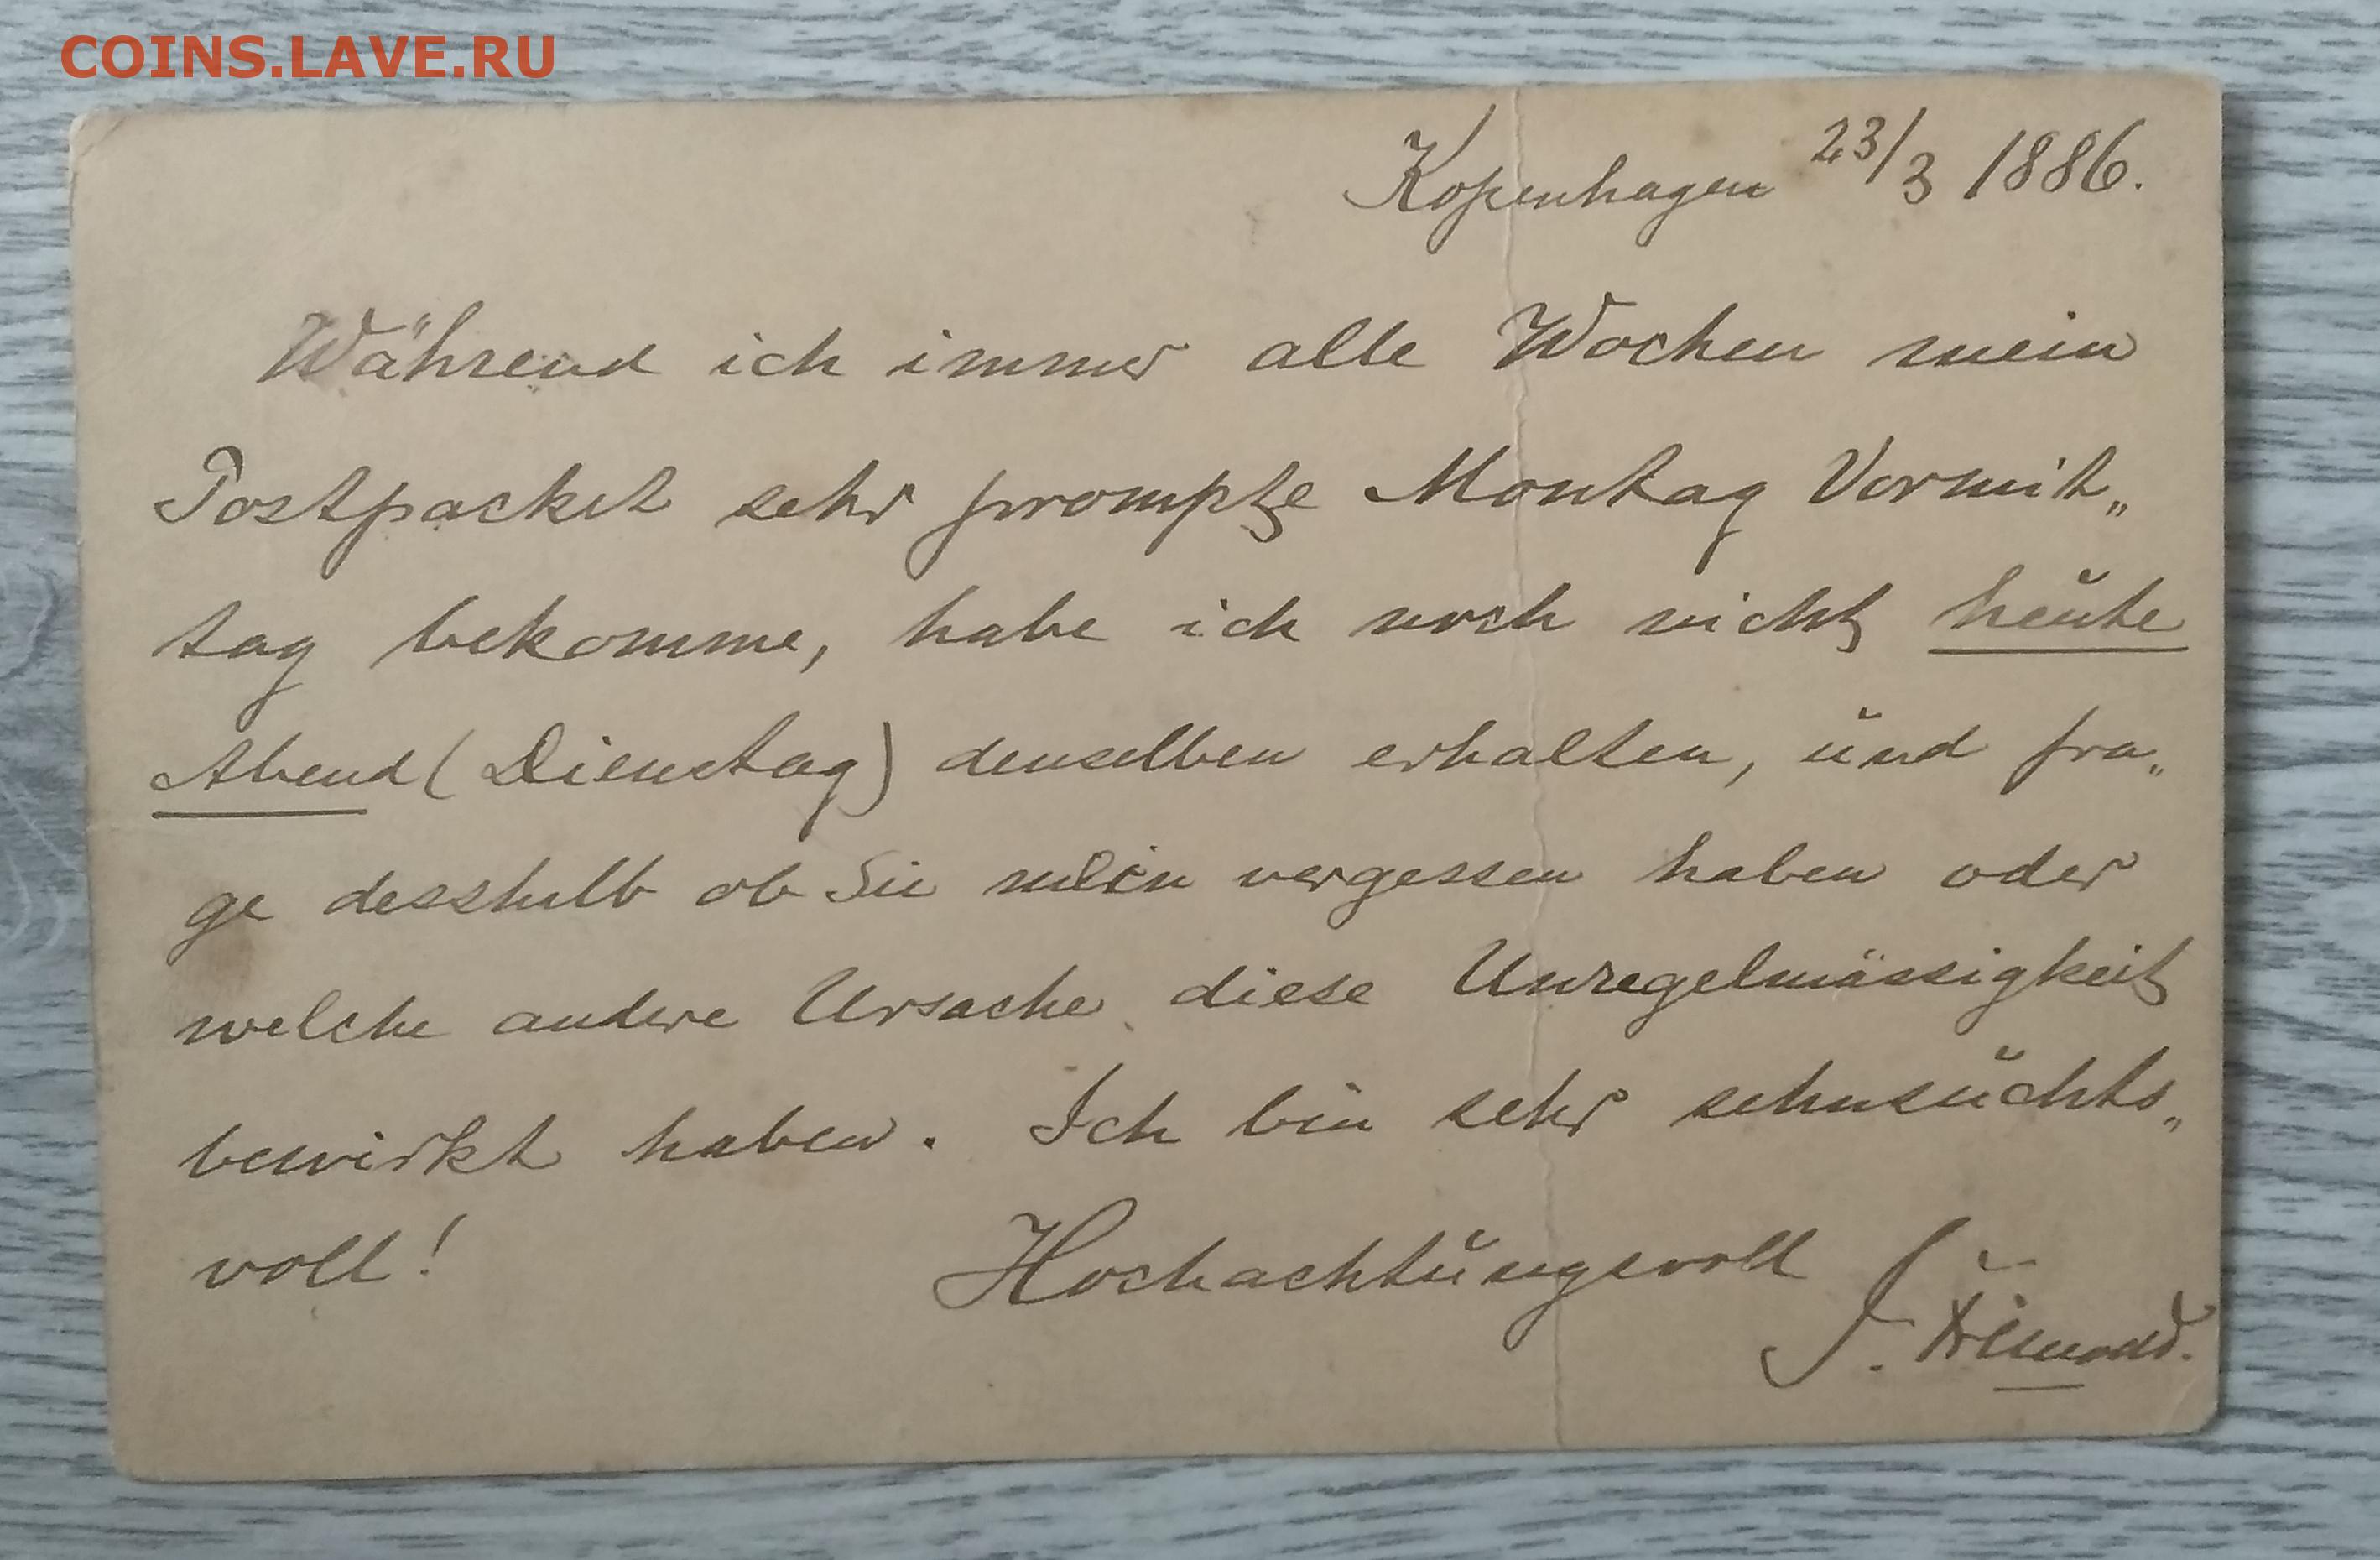 COINS.LAVE.RU
Kopenhagen 23/3 1886.
Während ich immer alle Wochen mein
Postpacket sehr prompte Montag Vormit„
tag bekomme, habe ich noch nicht heute
Abend (Dienstag) denselben erhalten, und fra„
ge desshalb ob Sie mein vergessen haben oder
welche andere Ursache diese Unregelmässigkeit
bewirkt haben. Ich bin sehr sehnsuchts„
voll!
Hochachtungsvoll